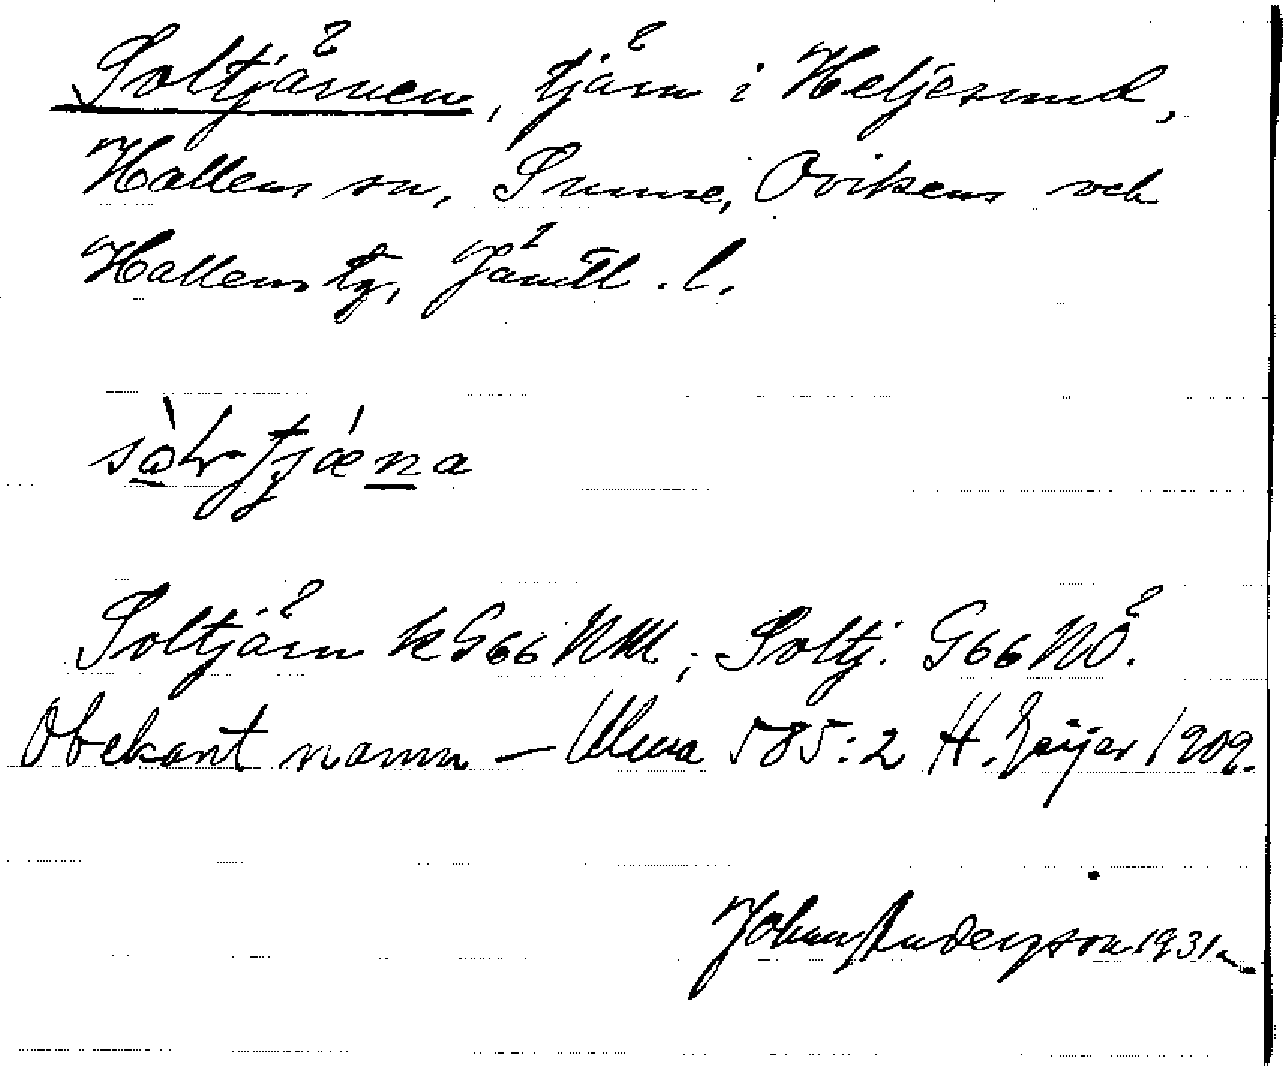 Soltjärnen, tjärn i Heljesund,
Hallens sn, Sunne, Ovikens och
Hallens tg, Jämtl. l.
Soltjärn k G66 NM; Soltj. G66 NÖ.
Obekant namn – Ulma 585:2 H. Geijer 1909.
Johan Anderson 1931